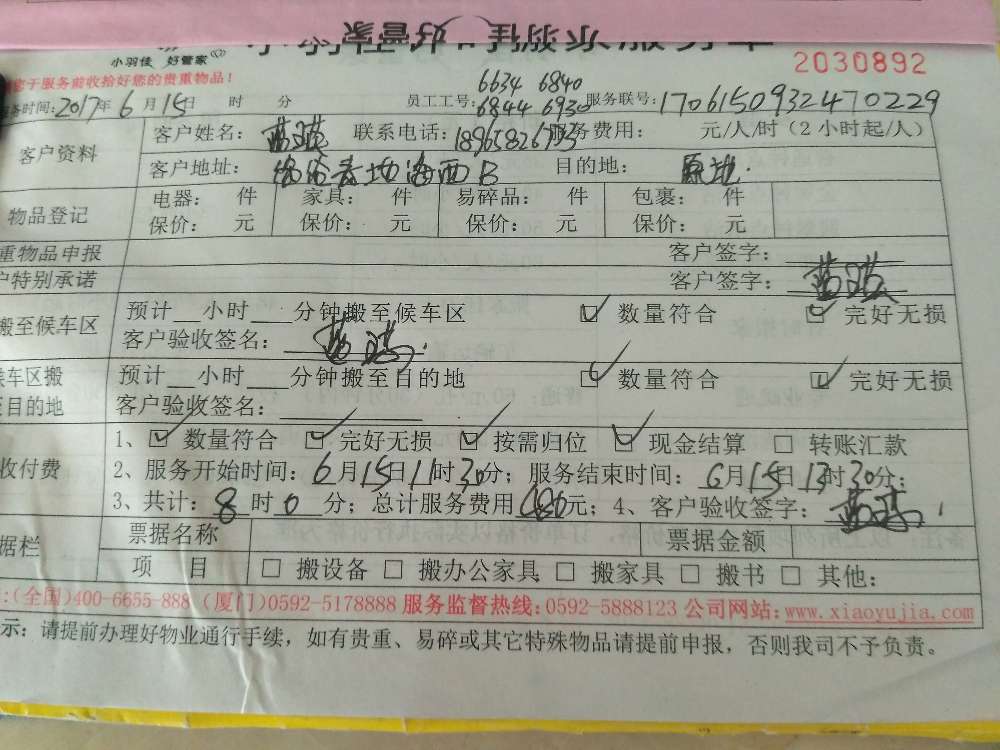 小羽佳 好管家
2030892
于服务前收拾好您的贵重物品！
6634 6840
服务时间：2017年6月15日 时 分 员工工号：6844 6930 服务联号：1706150932470229
客户资料
客户姓名： 联系电话：18965826793 服务费用： 元/人/时（2小时起/人）
客户地址： 海西B 目的地：原地
物品登记
电器： 件 家具： 件 易碎品： 件 包裹： 件
保价： 元 保价： 元 保价： 元 保价： 元
重物品申报 客户签字：
户特别承诺 客户签字：
搬至候车区
预计__小时___分钟搬至候车区 ☑ 数量符合 ☑ 完好无损
客户验收签名：
候车区搬至目的地
预计__小时___分钟搬至目的地 ☑ 数量符合 ☑ 完好无损
客户验收签名：
收付费
1、☑ 数量符合 ☑ 完好无损 ☑ 按需归位 ☑ 现金结算 □ 转账汇款
2、服务开始时间：6月15日11时30分；服务结束时间：6月15日13时30分；
3、共计：8时0分；总计服务费用480元；4、客户验收签字：
据栏
票据名称 票据金额
项 目 □ 搬设备 □ 搬办公家具 □ 搬家具 □ 搬书 □ 其他：
:(全国)400-6655-888 (厦门)0592-5178888 服务监督热线：0592-5888123 公司网站：www.xiaoyujia.com
示：请提前办理好物业通行手续，如有贵重、易碎或其它特殊物品请提前申报，否则我司不予负责。